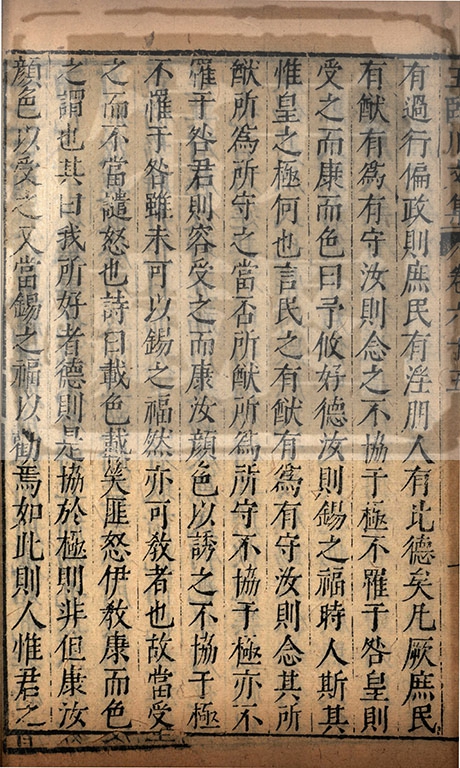 王臨川文集 卷六十五
有過行偏政則庶民有淫朋人有比德矣凡厥庶民
有猷有為有守汝則念之不協于極不罹于咎皇則
受之而康而色曰予攸好德汝則錫之福時人斯其
惟皇之極何也言民之有猷有為有守汝則念其所
猷所為所守之當否所猷所為所守不協于極亦不
罹于咎君則容受之而康汝顏色以誘之不協于極
不罹于咎雖未可以錫之福然亦可教者也故當受
之而不當譴怒也詩曰載色載笑匪怒伊教康而色
之謂也其曰我所好者德則是協於極則非但康汝
顏色以受之又當錫之福以勸焉如此則人惟君之